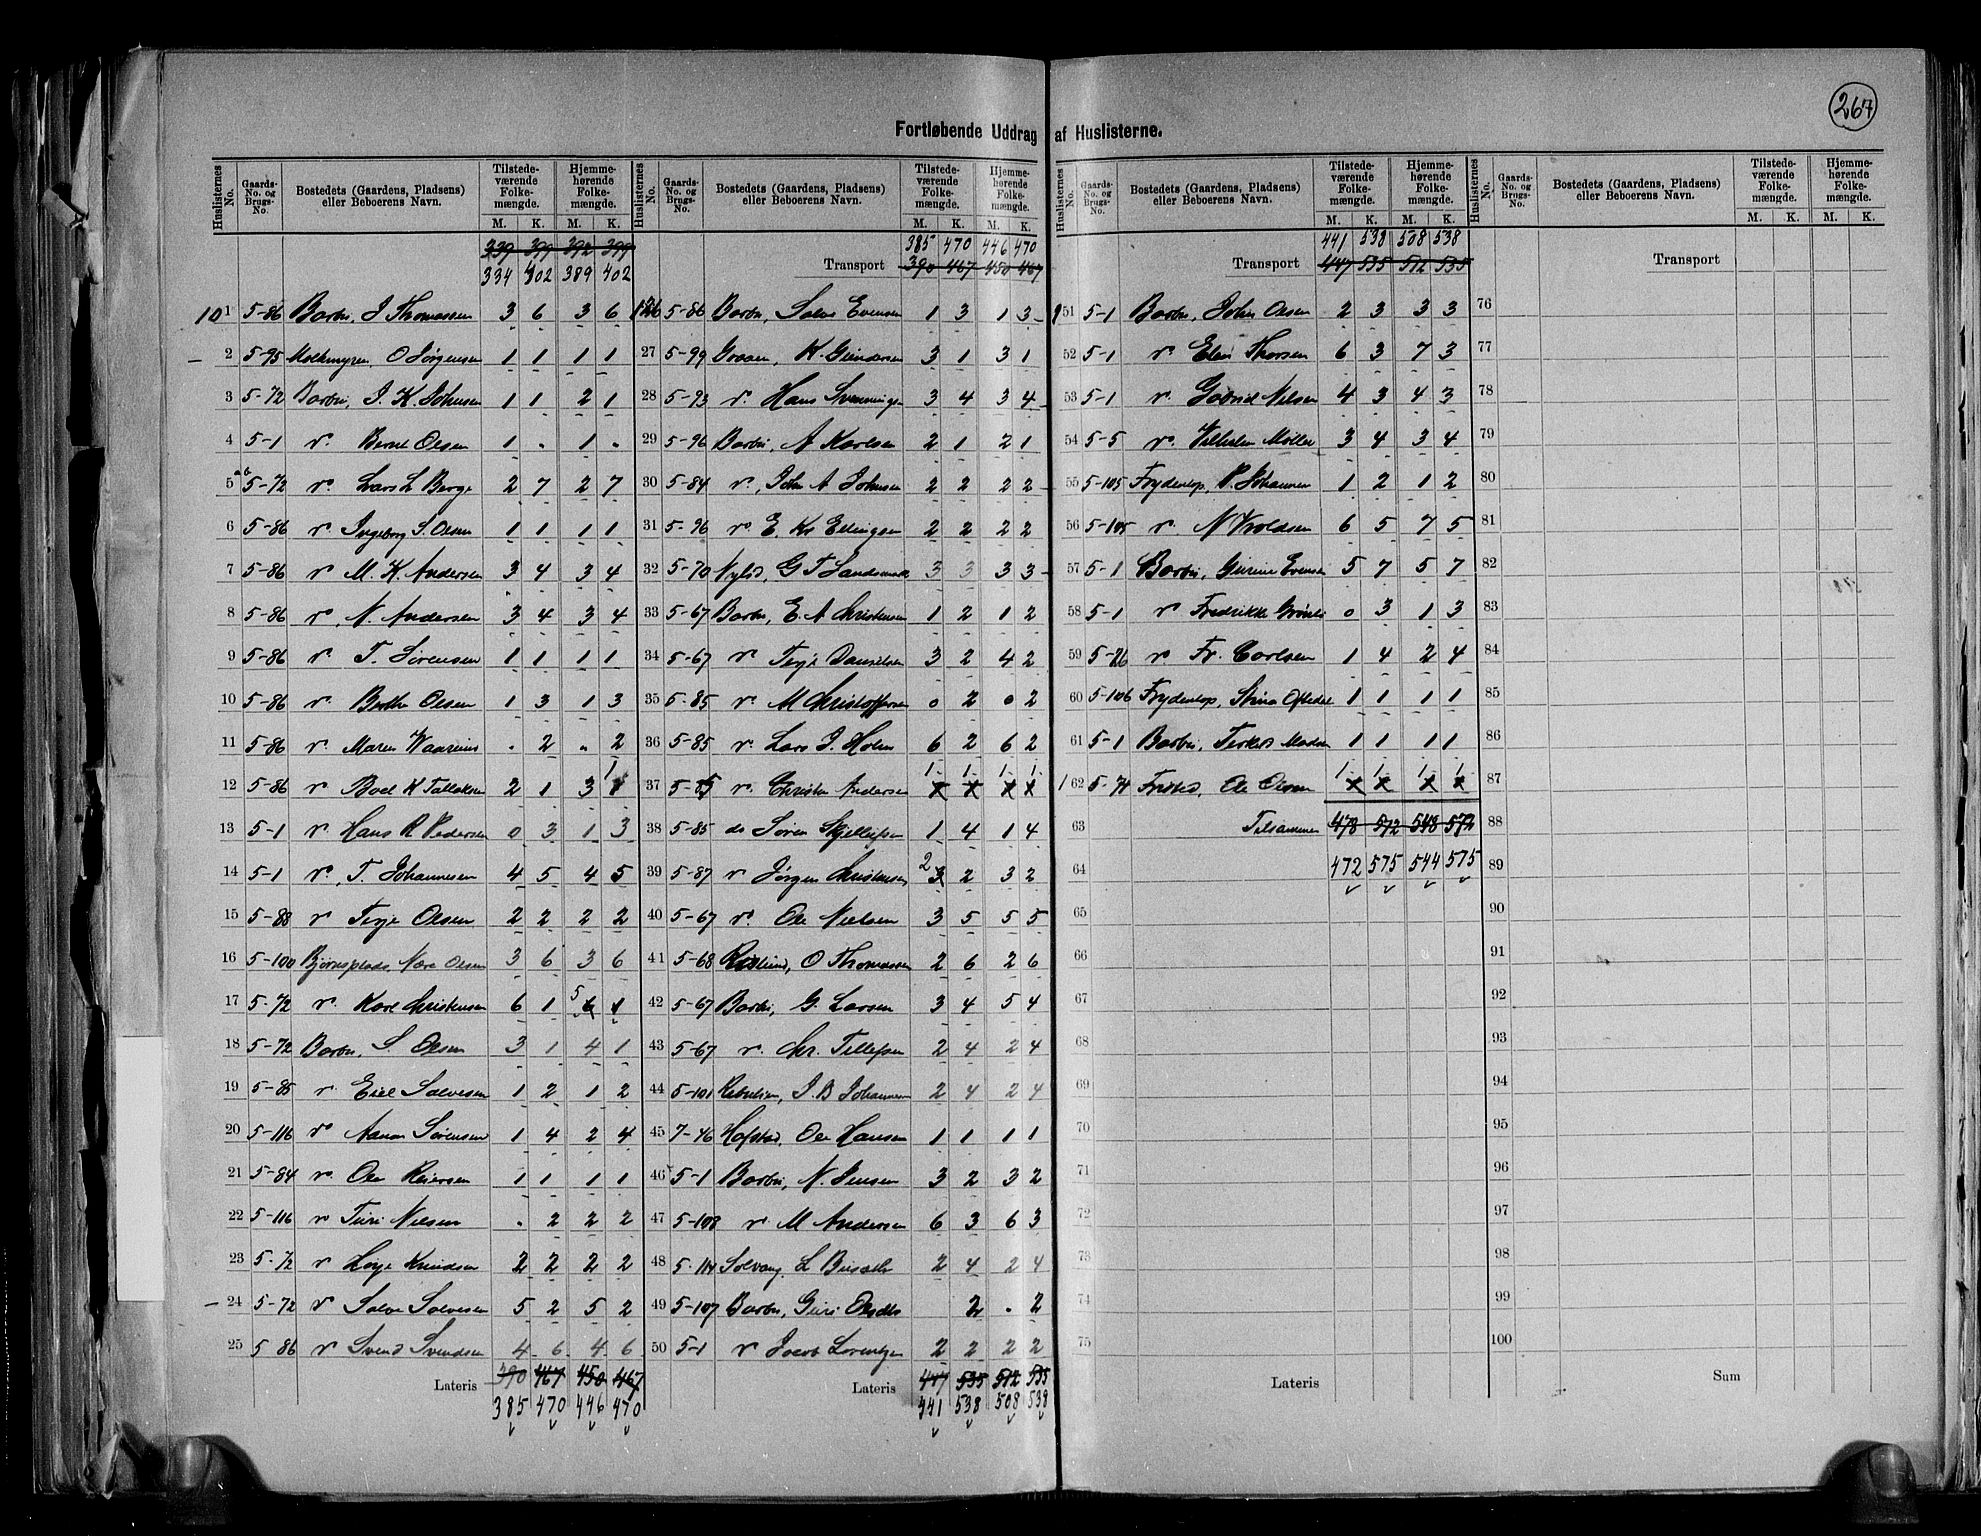 267
Fortløbende Uddrag af Huslisterne.
Huslisternes No. Gaards-No. og Brugs-No. Bostedets (Gaardens, Pladsens) eller Beboerens Navn. Tilstedeværende Folkemængde. M. K. Hjemmehørende Folkemængde. M. K.
339 399 392 399
334 402 389 402
101 5-86 Barbu, J Thomassen 3 6 3 6
2 5-95 O Jørgensen 1 1 1 1
3 5-72 Barbu, J. K. Johnsen 1 1 2 1
4 5-1 Bernt Olsen 1 - 1 -
5 5-72 Lars L Berge 2 7 2 7
6 5-86 Ingeborg S. Olsen 1 1 1 1
7 5-86 M. K. Andersen 3 4 3 4
8 5-86 N. Andersen 3 4 3 4
9 5-86 T. Sørensen 1 1 1 1
10 5-86 Berthe Olsen 1 3 1 3
11 5-86 Maren - 2 - 2
12 5-86 Boel K Tallaksen 2 1 3 1
13 5-1 Hans R Pedersen 0 3 1 3
14 5-1 T. Johannesen 4 5 4 5
15 5-88 Terje Olsen 2 2 2 2
16 5-100 Bjørnsplads, Olsen 3 6 3 6
17 5-72 Karl Christensen 6 1 5 6 1
18 5-72 Barbu, S. Olsen 3 1 4 1
19 5-85 Salvesen 1 2 1 2
20 5-116 Aanon Sørensen 1 4 2 4
21 5-84 Ole Reiersen 1 1 1 1
22 5-116 Nilsen - 2 2 2
23 5-72 Knudsen 2 2 2 2
24 5-72 Salve Salvesen 5 2 5 2
25 5-86 Svend Svendsen 4 6 4 6
Lateris 390 467 450 467
385 470 446 470
385 470 446 470
Transport 390 467 450 467
126 5-86 Barbu, Salve Evensen 1 3 1 3
27 5-99 K. Gundersen 3 1 3 1
28 5-93 Hans 3 4 3 4
29 5-96 Barbu, A Karlsen 2 1 2 1
30 5-84 John A Johnsen 2 2 2 2
31 5-96 E. Kr Ellingsen 2 2 2 2
32 5-70 G T 3 3 3 3
33 5-67 Barbu, E. A Christensen 1 2 1 2
34 5-67 Terje Danielsen 3 2 4 2
35 5-85 M Christoffersen 0 2 0 2
36 5-85 Lars J. Holm 6 2 6 2
37 5-85 Andersen 1 1 1 1
38 5-85 do Søren 1 4 1 4
39 5-87 Jørgen Christensen 2 3 2 3 2
40 5-67 Ole Nielsen 3 5 5 5
41 5-68 O Thomassen 2 6 2 6
42 5-67 Barbu, G. Larsen 3 4 5 4
43 5-67 Chr. Tellefsen 2 4 2 4
44 5-101 J. B Johannesen 2 4 2 4
45 7-46 Hofstad, Ole Hansen 1 1 1 1
46 5-1 Barbu, N. Jensen 3 2 3 2
47 5-108 M Andersen 6 3 6 3
48 Solvang, L 2 4 2 4
49 5-107 Barbu, Guri 2 - 2
50 5-1 Jacob Lorentzen 2 2 2 2
Lateris 447 535 512 535
441 538 508 538
441 538 508 538
Transport 447 535 512 535
151 5-1 Barbu, John Olsen 2 3 3 3
52 5-1 Thorsen 6 3 7 3
53 5-1 Gabriel Nilsen 4 3 4 3
54 5-5 Vilhelm Møller 3 4 3 4
55 5-105 1 2 1 2
56 5-105 N Vroldsen 6 5 7 5
57 5-1 Barbu, Gurine Evensen 5 7 5 7
58 5-1 Fredrikke 0 3 1 3
59 5-26 Fr. Carlsen 1 4 2 4
60 5-106 Stina 1 1 1 1
61 5-1 Barbu, Terkel Madsen 1 1 1 1
162 5-71 Ole Olsen 1 1 1 1
63 Tilsammen 478 572 548 572
64 472 575 544 575
65
66
67
68
69
70
71
72
73
74
75
Lateris
Transport
76
77
78
79
80
81
82
83
84
85
86
87
88
89
90
91
92
93
94
95
96
97
98
99
100
Sum